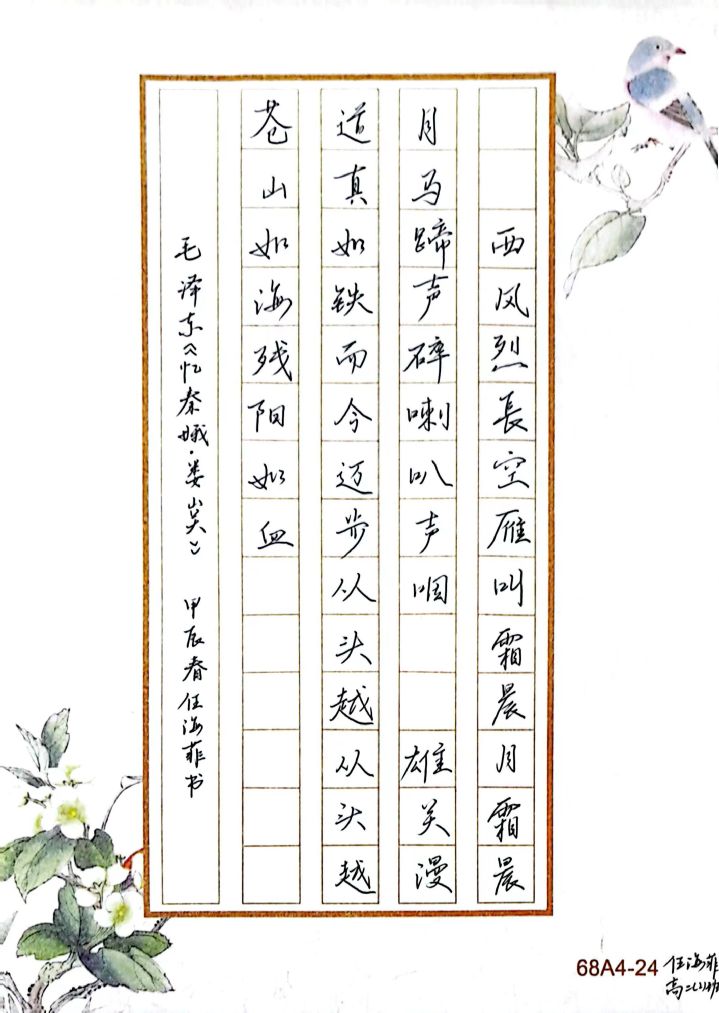 西风烈長空雁叫霜晨月霜晨
月马蹄声碎喇叭声咽 雄关漫
道真如铁而今迈步从头越从头越
苍山如海残阳如血
毛泽东《忆秦娥·娄山关》 甲辰春任海菲书
68A4-24 任海菲
高二(1)班